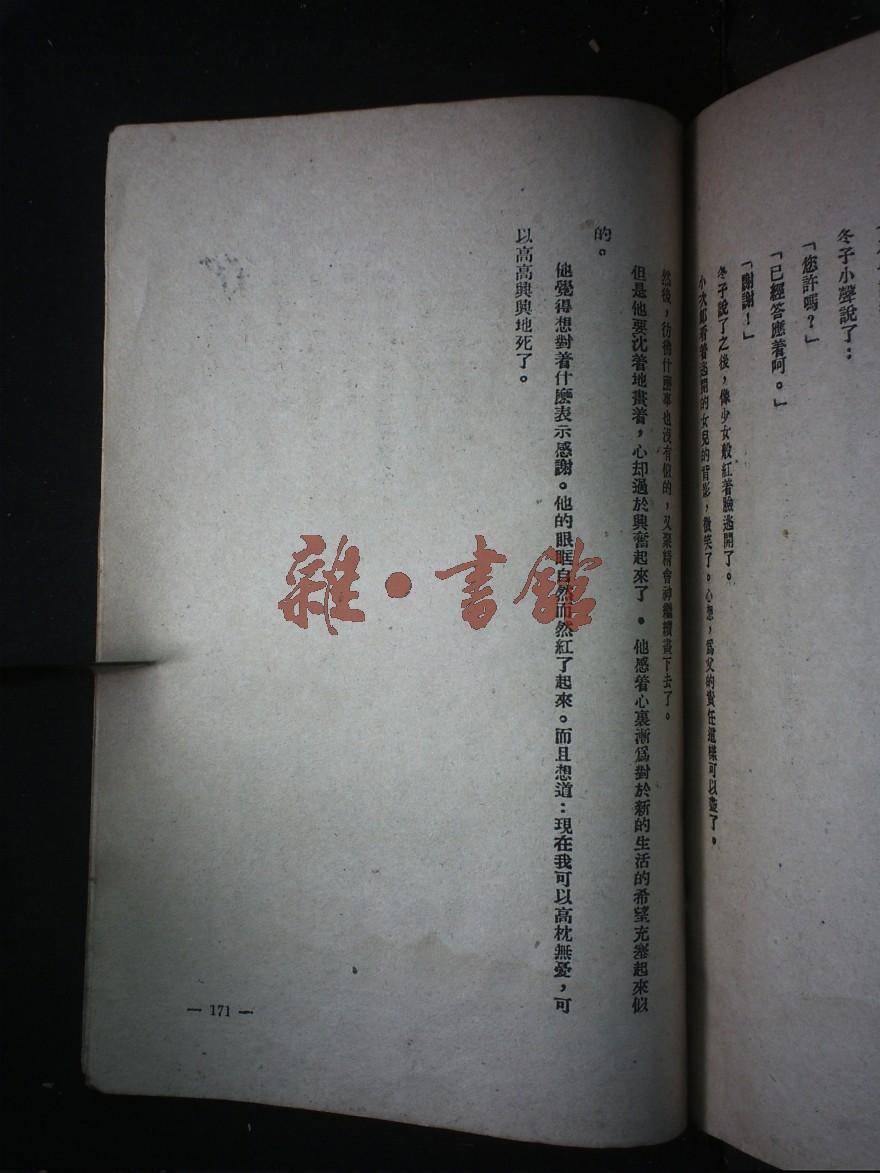 冬子小聲說了：
「您許嗎？」
「已經答應着呵。」
「謝謝！」
冬子說了之後，像少女般紅着臉逃開了。
小次郎看着逃開的女兒的背影，微笑了。心想，爲父的責任這樣可以盡了。
然後，彷彿什麼事也沒有似的，又聚精會神繼續畫下去了。
但是他要沈着地畫着，心却過於興奮起來了。他感着心裏漸爲對於新的生活的希望充塞起來似
的。
他覺得想對着什麼表示感謝。他的眼眶自然而然紅了起來。而且想道：現在我可以高枕無憂，可
以高高興興地死了。
— 171 —
雜·書館